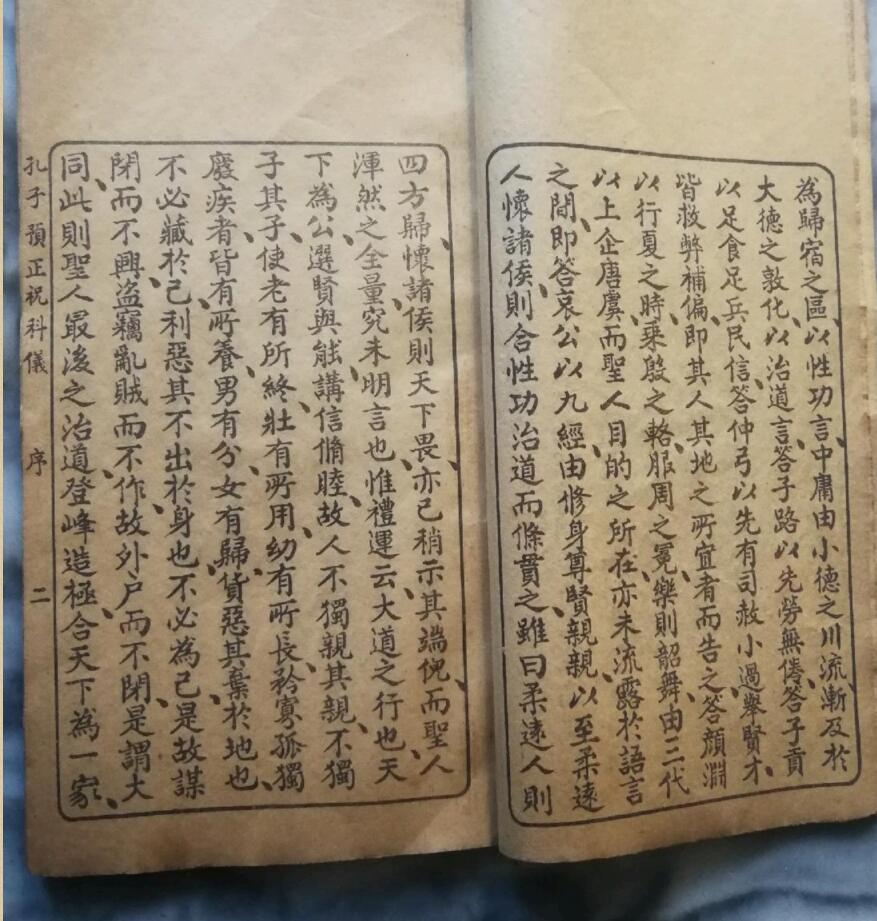 為歸宿之區、以性功言中庸由小德之川流漸及於
大德之敦化、以治道言、答子路以先勞無倦、答子貢
以足食足兵民信、答仲弓以先有司赦小過舉賢才、
皆救弊補偏、即其人其地之所宜者而告之、答顏淵
以行夏之時、乘殷之輅、服周之冕、樂則韶舞、由三代
以上企唐虞、而聖人目的之所在、亦未流露於語言
之間、即答哀公以九經、由修身尊賢親親、以至柔遠
人懷諸侯、則合性功治道而條貫之、雖曰柔遠人則
四方歸、懷諸侯則天下畏、亦已稍示其端倪、而聖人
渾然之全量、究未明言也、惟禮運云、大道之行也、天
下為公、選賢與能、講信脩睦、故人不獨親其親、不獨
子其子、使老有所終、壯有所用、幼有所長、矜寡孤獨
廢疾者、皆有所養、男有分、女有歸、貨惡其棄於地也、
不必藏於己、利惡其不出於身也、不必為己、是故謀
閉而不興、盜竊亂賊而不作、故外戶而不閉、是謂大
同、此則聖人最後之治道、登峰造極、合天下為一家、
孔子預正祝科儀 序 二